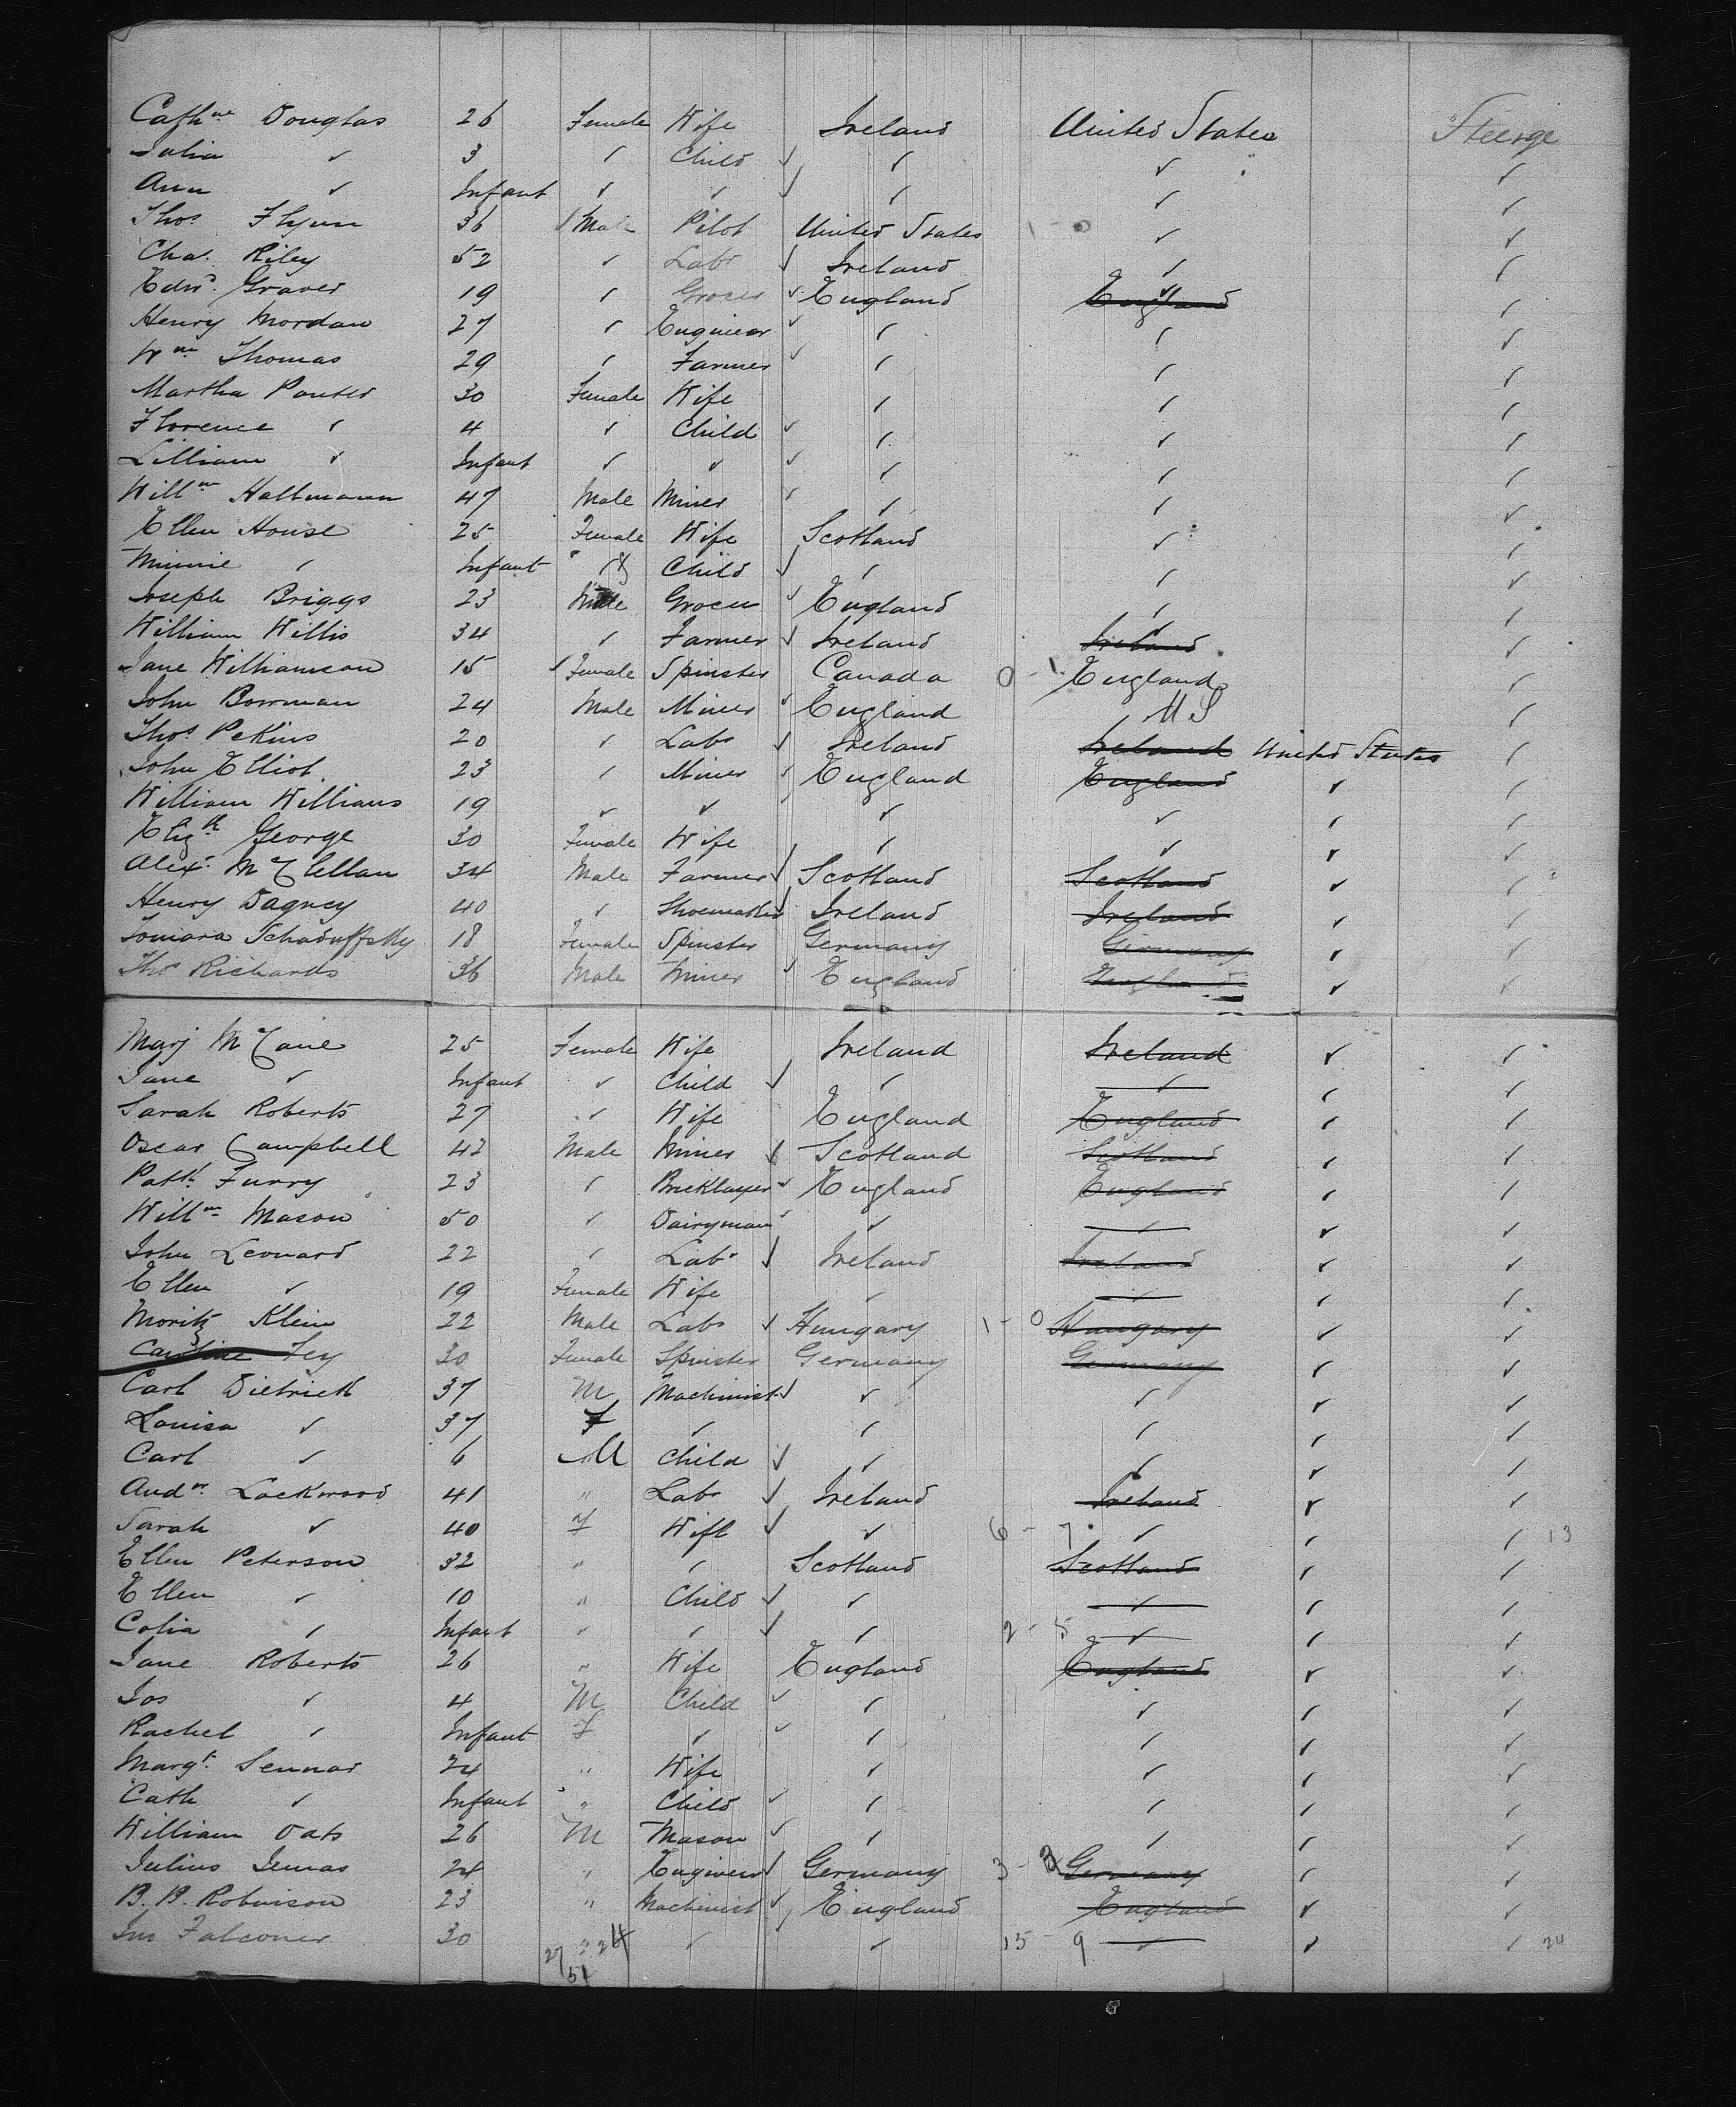 Cathne Douglas 26 Female Wife Ireland United States Steerge
Julia ✓ 3 ✓ Child ✓ ✓ ✓ ✓
Ann ✓ Infant ✓ ✓ ✓ ✓ ✓ ✓
Thos Flynn 36 Male Pilot United States 1 - 0 ✓ ✓
Chas. Riley 52 ✓ Labr ✓ Ireland ✓ ✓
Edwd. Graves 19 ✓ Grocer ✓ England England ✓
Henry Mordan 27 ✓ Engineer ✓ ✓ ✓ ✓
Wm Thomas 29 ✓ Farmer ✓ ✓ ✓ ✓
Martha 30 Female Wife ✓ ✓ ✓
Florence ✓ 4 ✓ Child ✓ ✓ ✓ ✓
Lilliam ✓ Infant ✓ ✓ ✓ ✓ ✓ ✓
Willm Hallmann 47 Male Miner ✓ ✓ ✓ ✓
Ellen House 25 Female Wife Scotland ✓ ✓
Minnie ✓ Infant Child ✓ ✓ ✓ ✓
Joseph Briggs 23 Male Grocer ✓ England ✓ ✓
William Willis 34 ✓ Farmer ✓ Ireland Ireland ✓
Jane Williamson 15 Female Spinster Canada 0 - 1 England ✓
John Bowman 24 Male Miner ✓ England U S ✓
Thos Pekins 20 ✓ Labr ✓ Ireland Ireland United States ✓
John Elliot 23 ✓ Miner ✓ England England ✓ ✓
William Williams 19 ✓ ✓ ✓ ✓ ✓ ✓
Elizth George 30 Female Wife ✓ ✓ ✓ ✓
Alexr. McClellan 34 Male Farmer ✓ Scotland Scotland ✓ ✓
Henry Dagney 40 ✓ Shoemaker ✓ Ireland Ireland ✓ ✓
Schaduffsky 18 Female Spinster Germany Germany ✓ ✓
Thos Richards 36 Male Miner ✓ England England ✓ ✓
Mary McCane 25 Female Wife Ireland Ireland ✓ ✓
Jane ✓ Infant ✓ Child ✓ ✓ ✓ ✓ ✓
Sarah Roberts 27 ✓ Wife England England ✓ ✓
Oscar Campbell 42 Male Miner ✓ Scotland Scotland ✓ ✓
Patk. Furry 23 ✓ Bricklayer ✓ England England ✓ ✓
Willm Mason 50 ✓ Dairyman ✓ ✓ ✓ ✓ ✓
John Leonard 22 ✓ Labr ✓ Ireland Ireland ✓ ✓
Ellen ✓ 19 Female Wife ✓ ✓ ✓ ✓
Moritz Klein 22 Male Labr ✓ Hungary 1 - 0 Hungary ✓ ✓
Caroline Fey 30 Female Spinster Germany Germany ✓ ✓
Carl Dietrich 37 M Machinist ✓ ✓ ✓ ✓ ✓
Louisa ✓ 37 F ✓ ✓ ✓ ✓ ✓
Carl ✓ 6 M Child ✓ ✓ ✓ ✓ ✓
Andw. Lockwood 41 " Labr ✓ Ireland Ireland ✓ ✓
Sarah ✓ 40 F Wife ✓ ✓ 6 - 7 ✓ ✓ ✓ 13
Ellen Peterson 32 " ✓ Scotland Scotland ✓ ✓
Ellen ✓ 10 " Child ✓ ✓ ✓ ✓ ✓
Colia ✓ Infant ✓ ✓ ✓ ✓ 2 - 5 ✓ ✓ ✓
Jane Roberts 26 " Wife England England ✓ ✓
Jos ✓ 4 M Child ✓ ✓ ✓ ✓ ✓
Rachel ✓ Infant F ✓ ✓ ✓ ✓ ✓ ✓
Margt. Sennar 24 " Wife ✓ ✓ ✓ ✓
Cath ✓ Infant " Child ✓ ✓ ✓ ✓ ✓
William Oats 26 M Mason ✓ ✓ ✓ ✓ ✓
Julius 24 " Engineer ✓ Germany 3 - 3 Germany ✓ ✓
B. B. Robinson 23 " Machinist ✓ England England ✓ ✓
Jno Falconer 30 ✓ ✓ 15 - 9 ✓ ✓ ✓ 24
27 24
51